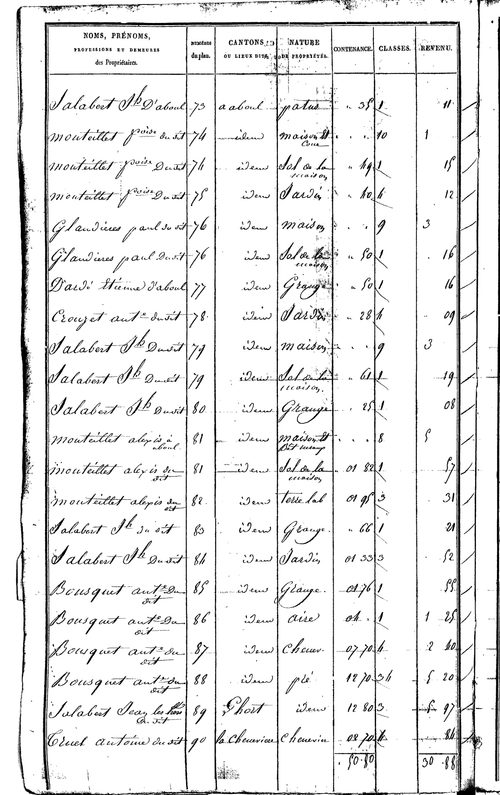 NOMS, PRÉNOMS, PROFESSIONS ET DEMEURES des Propriétaires. NUMÉROS du plan. CANTONS OU LIEUX DITS. NATURE DE PROPRIÉTÉS. CONTENANCE. CLASSES. REVENU.
Salabert Jh D'aboul 73 a aboul patus .. 35 1 11
monteillet poise du dit 74 idem maison et Cour . . . 10 1
monteillet poise Du dit 74 idem Sol de la maison .. 49 1 15
monteillet poise Du dit 75 idem Jardin .. 40 4 12
Glandieres paul du dit 76 idem maison . . . 9 3
Glandieres paul Du dit 76 idem Sol de la maison .. 50 1 16
D'ardé Etienne d'aboul 77 idem Grange .. 50 1 16
Crouzet ante du dit 78 idem Jardin .. 28 4 09
Salabert Jh Du dit 79 idem maison . . . 9 3
Salabert Jh Du dit 79 idem Sol de la maison .. 61 1 19
Salabert Jh Du dit 80 idem Grange .. 25 1 08
monteillet alexis d'aboul 81 idem maison et . . . 8 5
monteillet alexis du dit 81 idem Sol de la maison 01 82 1 57
monteillet alexis du dit 82 idem terre lab 01 95 3 31
Salabert Jh du dit 83 idem Grange .. 66 1 21
Salabert Jh Du dit 84 idem Jardin 01 33 3 52
Bousquet ante Du dit 85 idem Grange 01 76 1 55
Bousquet ante Du dit 86 idem aire 04 . 1 1 25
Bousquet ante du dit 87 idem Chenev. 07 70 4 2 40
Bousquet ante du dit 88 idem pré 12 70 34 5 20
Salabert Jean Du dit 89 L'hort idem 12 80 3 5 97
Truel antoine du dit 90 la Cheneviere Chenevier 02 70 4 84
50.50 30 88